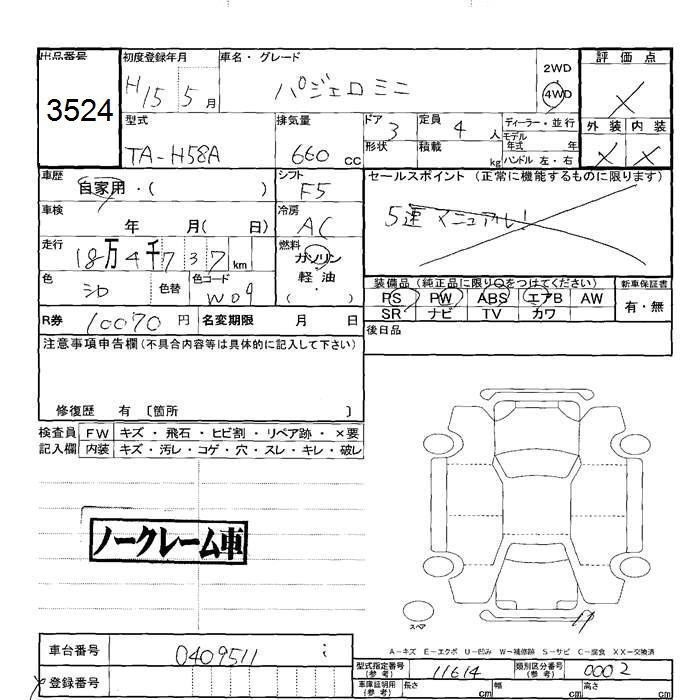 出品番号 初度登録年月 車名・グレード 評価点
3524 H15 5月 パジェロミニ 2WD 4WD X
型式 排気量 ドア 3 定員 4人 ディーラー・並行 外装 内装
TA-H58A 660 cc 形状 積載 kg モデル年式 年 X X
ハンドル 左・右
車歴 シフト セールスポイント(正常に機能するものに限ります)
自家用・( ) F5
車検 冷房 5速マニュアル!
年 月( 日) AC
走行 燃料
18万4千737km ガソリン
色 シロ 色替 色コード W09 軽・油
( )
装備品(純正品に限り○をつけてください) 新車保証書
PS PW ABS エアB AW 有・無
SR ナビ TV カワ
R券 10070円 名変期限 月 日 後日品
注意事項申告欄(不具合内容等は具体的に記入して下さい)
修復歴 有 〔箇所 〕
検査員 FW キズ・飛石・ヒビ割・リペア跡・×要
記入欄 内装 キズ・汚レ・コゲ・穴・スレ・キレ・破レ
ノークレーム車
スペア
A-キズ E-エクボ U-凹み W-補修跡 S-サビ C-腐食 XX-交換済
車台番号 0409511 i 型式指定番号(参考) 11614 類別区分番号(参考) 0002
登録番号 車庫証明用(参考) 長さ cm 幅 cm 高さ cm